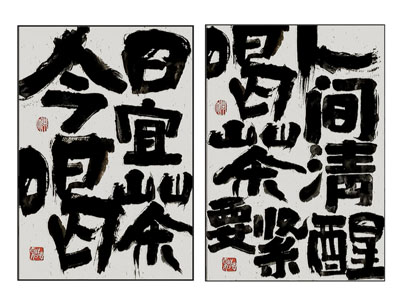 今日宜喝茶
人间清醒
喝茶要紧